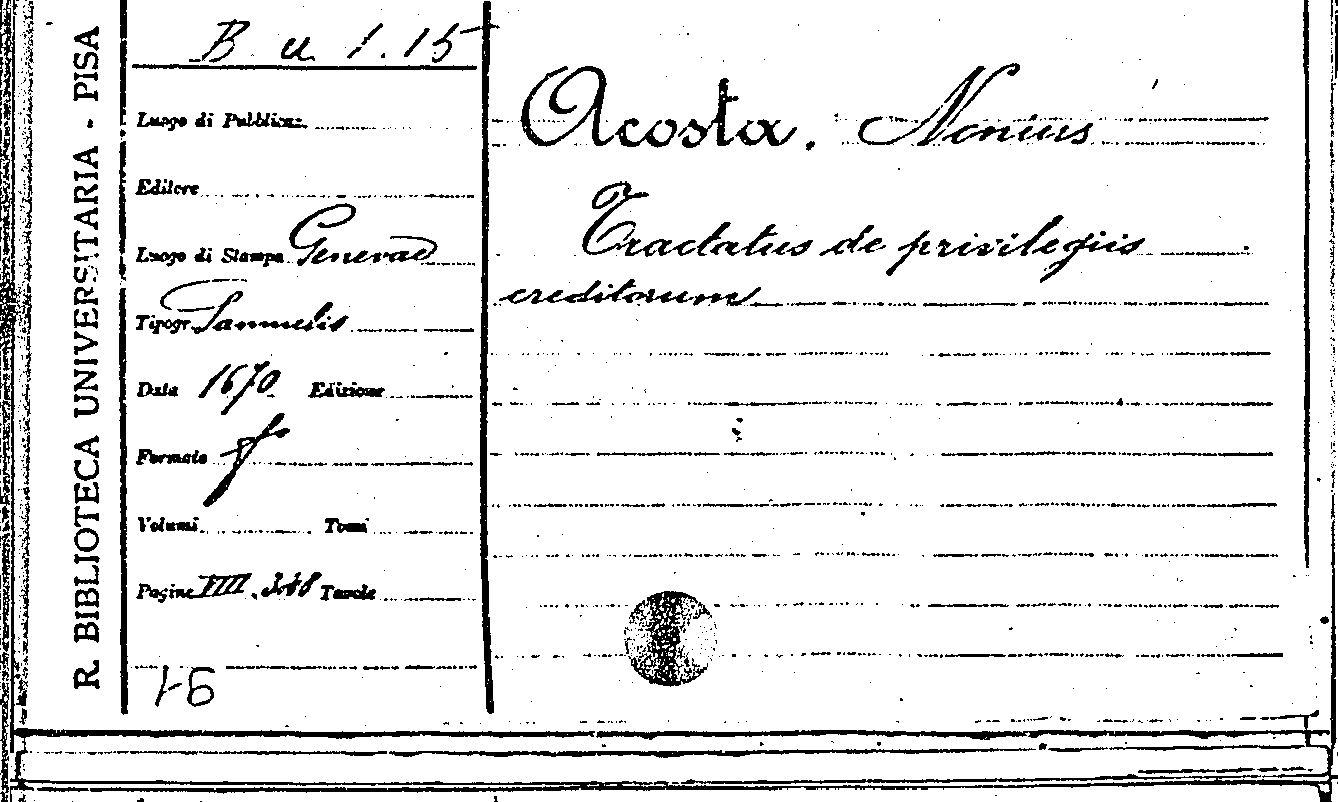 R. BIBLIOTECA UNIVERSITARIA - PISA
B a 1.15
Luogo di Pubblicaz.
Editore
Luogo di Stampa Genevae
Tipogr. Samuelis
Data 1670 Edizione
Formato f
Volumi Tomi
Pagine VIII. 348 Tavole
Acosta. Nonius
Tractatus de privilegiis
creditorum